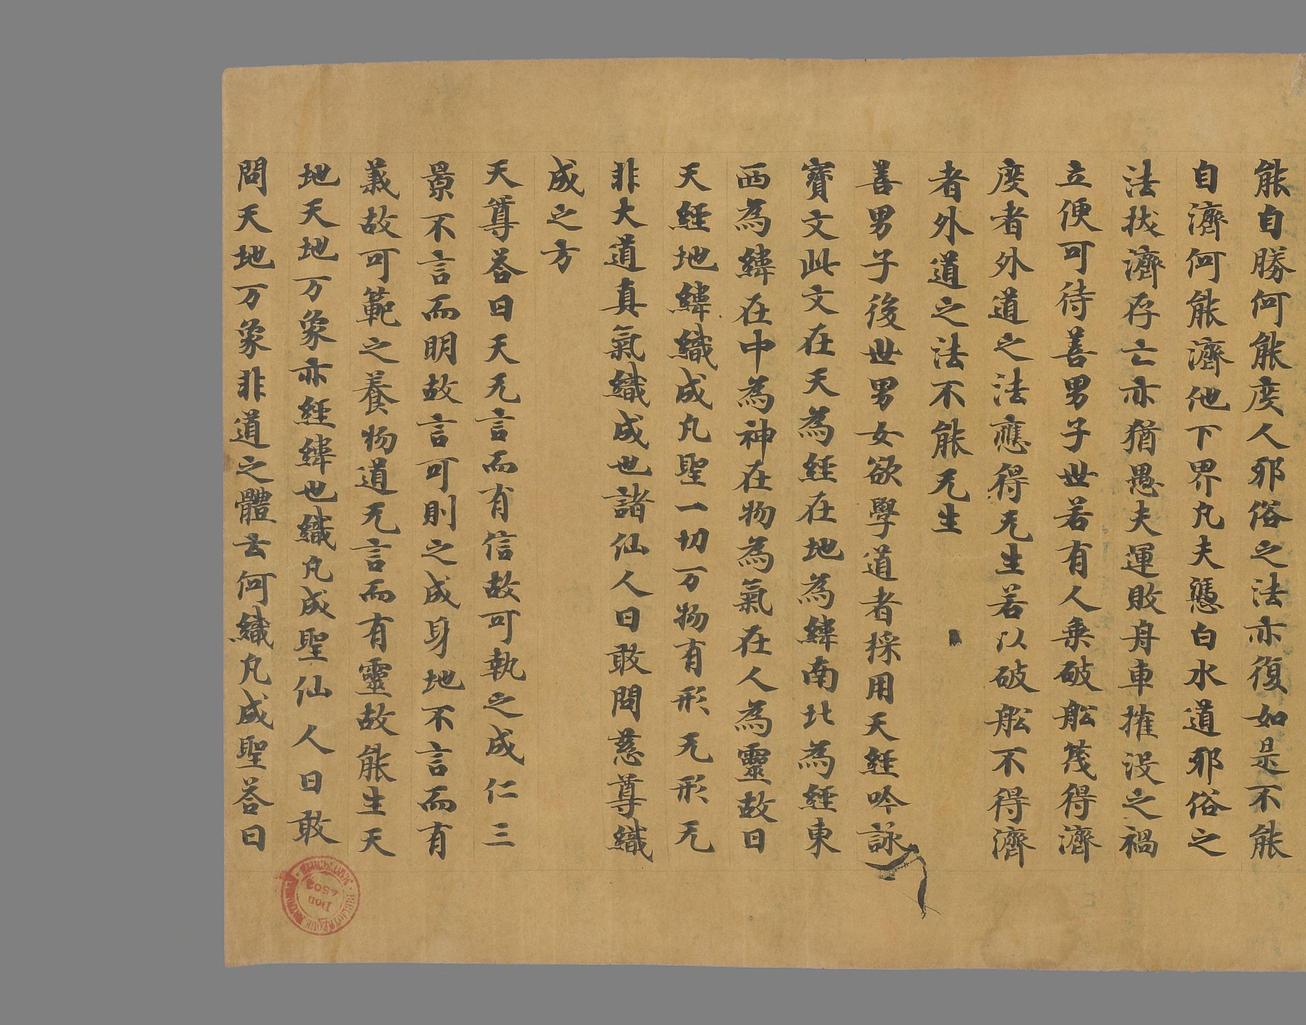 能自勝何能度人邪俗之法亦復如是不能
自濟何能濟他下界凡夫憑白水道邪俗之
法拔濟存亡亦猶愚夫運敗舟車摧没之禍
立便可待善男子世若有人乗破舩筏得濟
度者外道之法應得无生若以破舩不得濟
者外道之法不能无生
善男子後世男女欲學道者採用天經吟詠
寶文此文在天為經在地為緯南北為經東
西為緯在中為神在物為氣在人為靈故曰
天經地緯織成凡聖一切万物有形无形无
非大道真氣織成也諸仙人曰敢問慈尊織
成之方
天尊荅曰天无言而有信故可執之成仁三
景不言而明故言可則之成身地不言而有
義故可範之養物道无言而有靈故能生天
地天地万象亦經緯也織凡成聖仙人曰敢
問天地万象非道之體云何織凡成聖荅曰
DON 4502